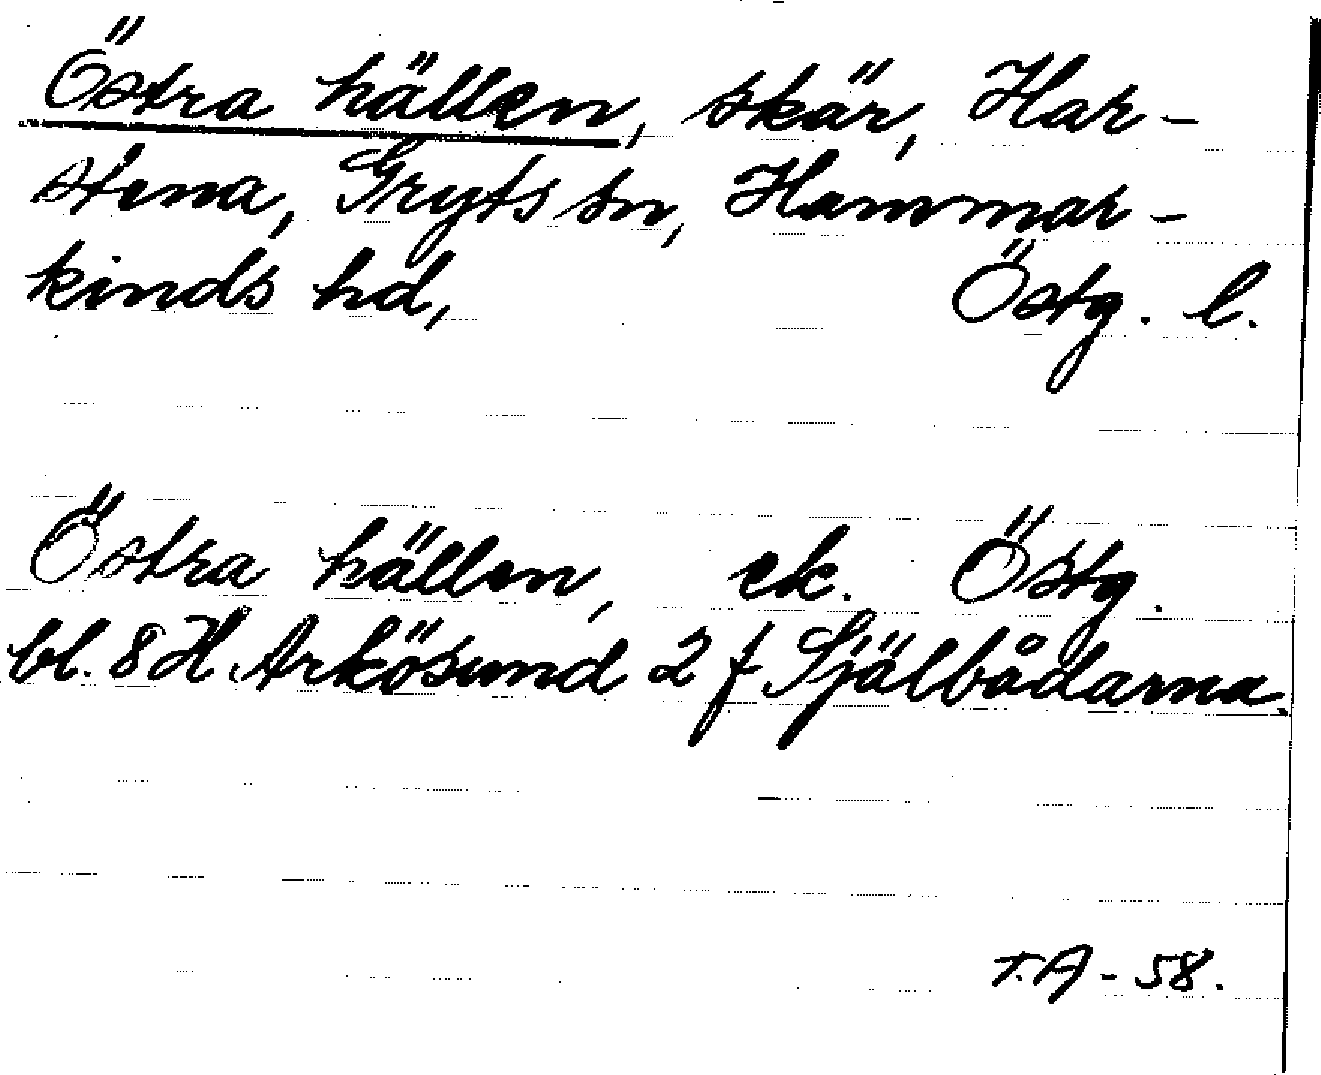 Östra hällen, skär, Har-
stena, Gryts sn, Hammar-
kinds hd, Östg. l.
Östra hällen, ek. Östg.
bl. 8 H. Arkösund 2 f Själbådarna.
T.A - 58.